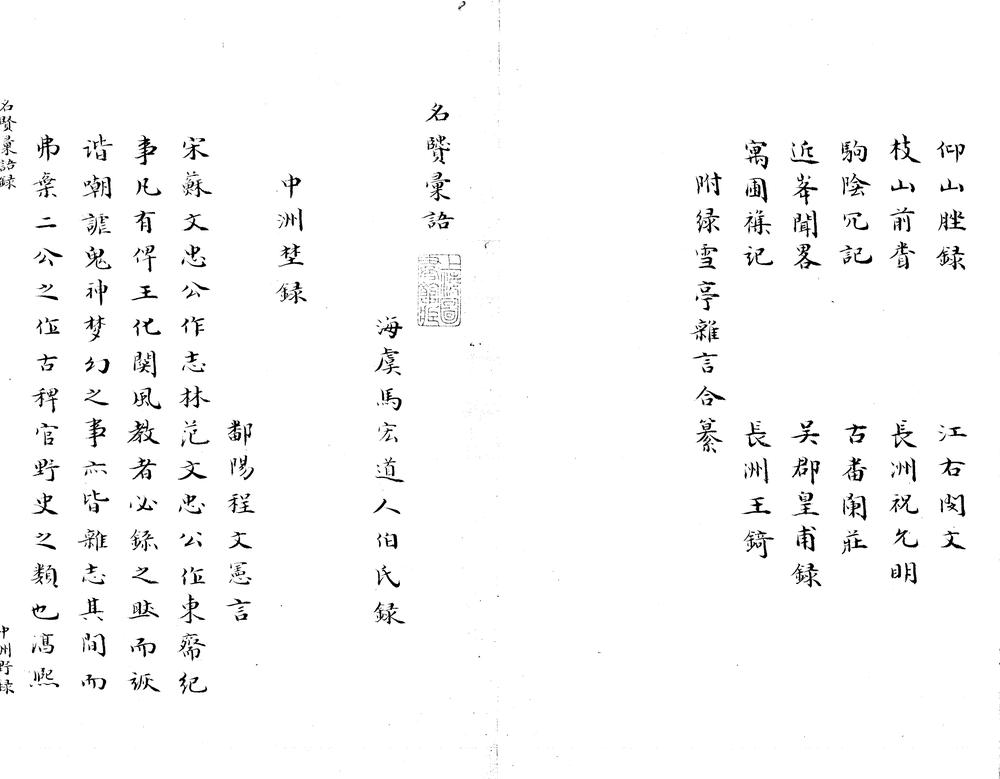 仰山脞録 江右閔文
枝山前聞 長洲祝允明
駒陰冗記 古番闌莊
近峯聞畧 吴郡皇甫録
寓圃襍记 長洲王錡
附緑雪亭雜言合纂
名賢彙語
海虞馬宏道人伯氏録
中洲埜録
鄱陽程文憲言
宋蘇文忠公作志林范文忠公作東齋紀
事凡有俾王化関風教者必錄之然而詼
谐嘲謔鬼神梦幻之事亦皆雜志其間而
弗棄二公之作古稗官野史之類也馮熙
名賢彙語録
中州野録